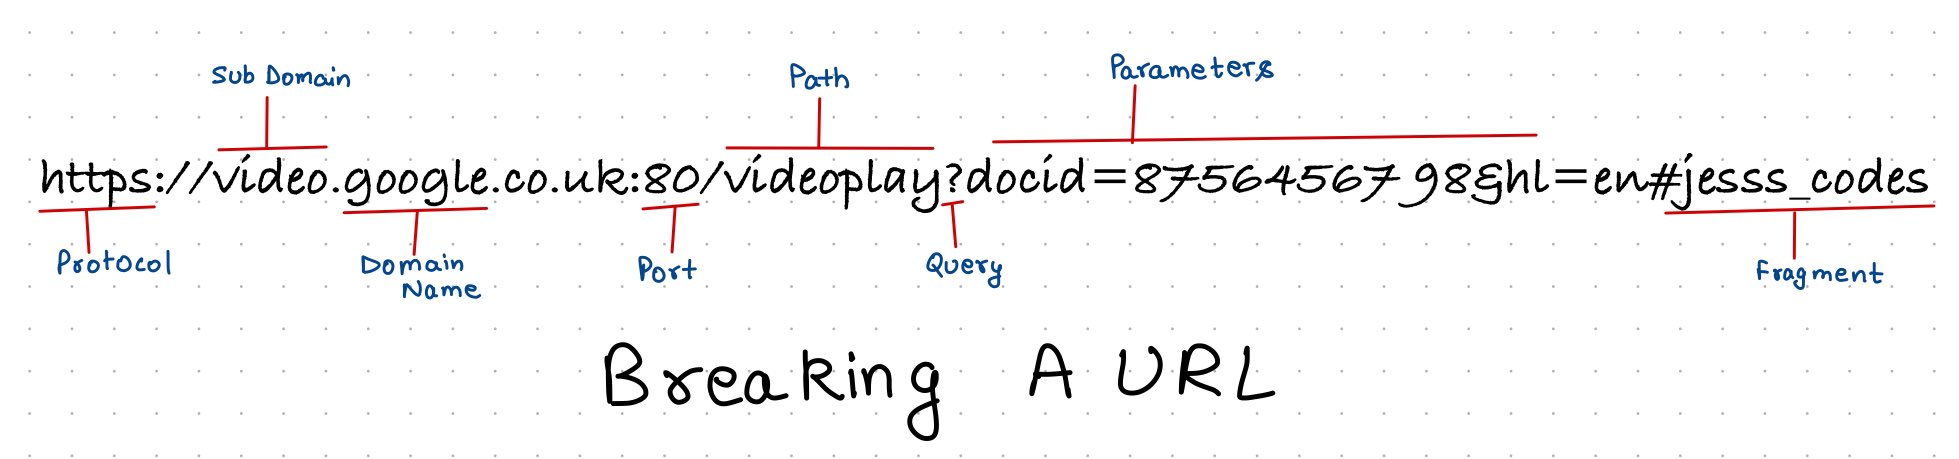 Sub Domain
Path
Parameters
https://video.google.co.uk:80/videoplay?docid=8756456798&hl=en#jesss_codes
Protocol
Domain
Name
Port
Query
Fragment
Breaking A URL